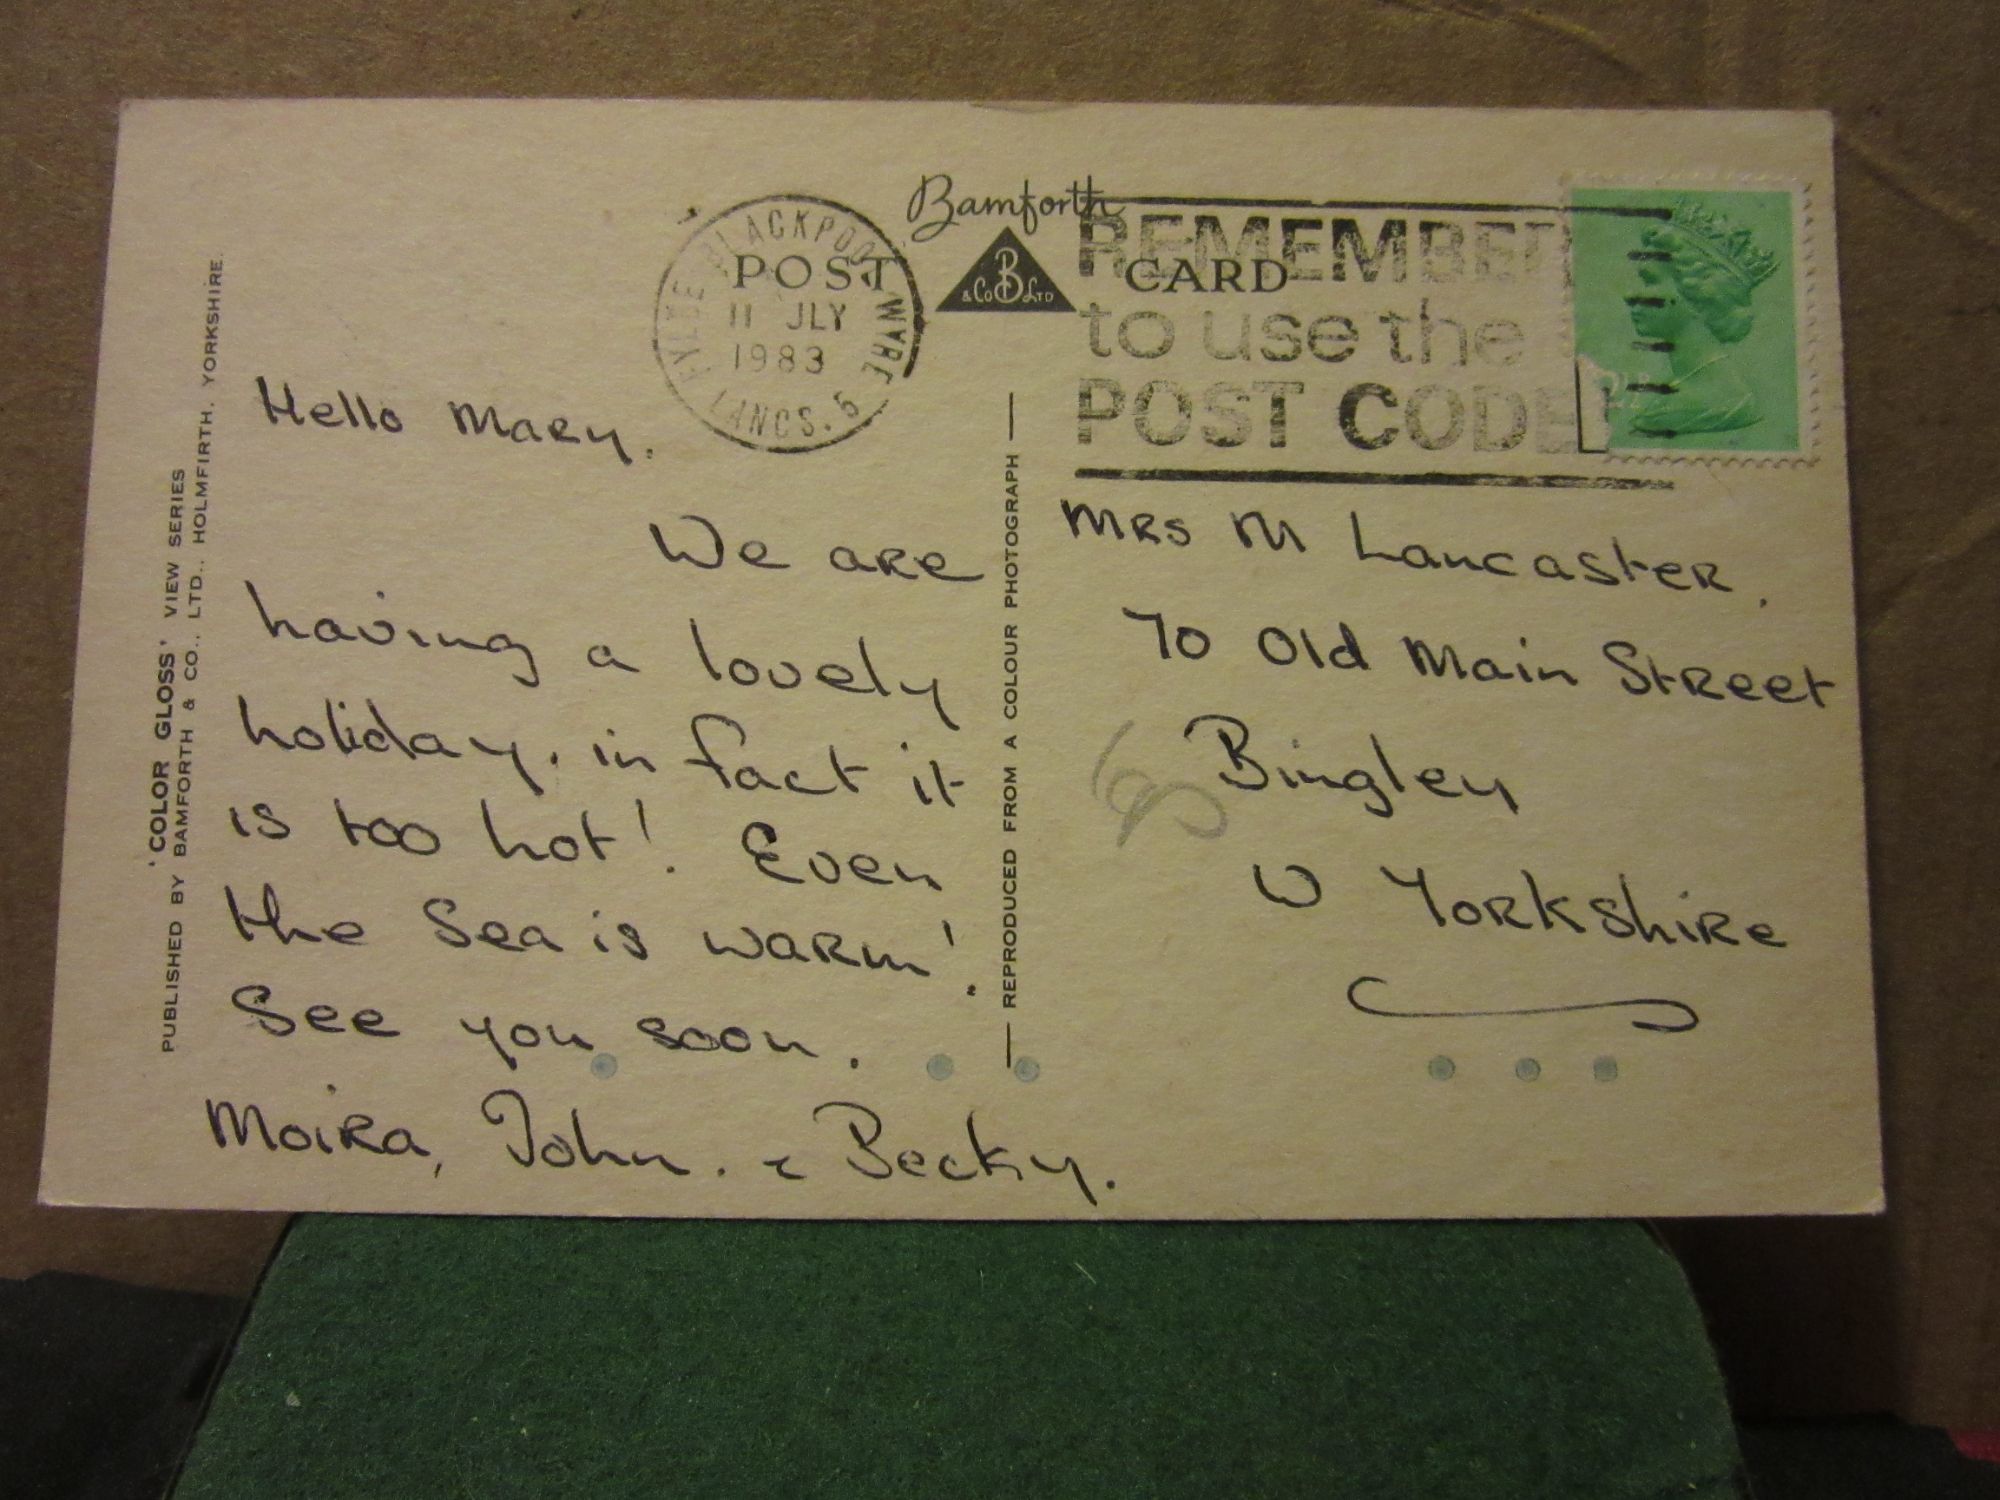 Bamforth
POST CARD
& Co B LTD
BLACKPOOL
WYRE
FYLDE
LANCS. 5
11 JLY
1983
REMEMBER
to use the
POST CODE
'COLOR GLOSS' VIEW SERIES
PUBLISHED BY BAMFORTH & CO., LTD., HOLMFIRTH, YORKSHIRE.
REPRODUCED FROM A COLOUR PHOTOGRAPH
Hello Mary.
We are
having a lovely
holiday. in fact it
is too hot! Even
the Sea is warm!
See you soon.
Moira, John. & Becky.
Mrs M Lancaster.
70 Old Main Street
Bingley
W Yorkshire